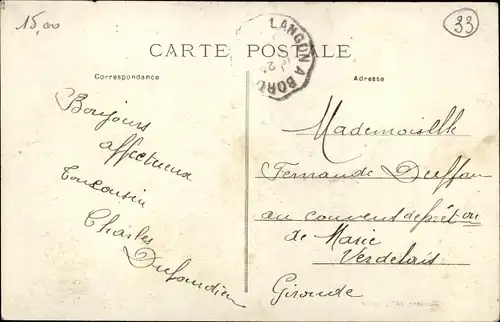 15,00
33
LANGON A BORD
CARTE POSTALE
Correspondance
Adresse
Bonjours
affectueux
Ton cousin
Charles
Mademoiselle
Fernande Duffau
au couvent
de Marie
Verdelais
Gironde